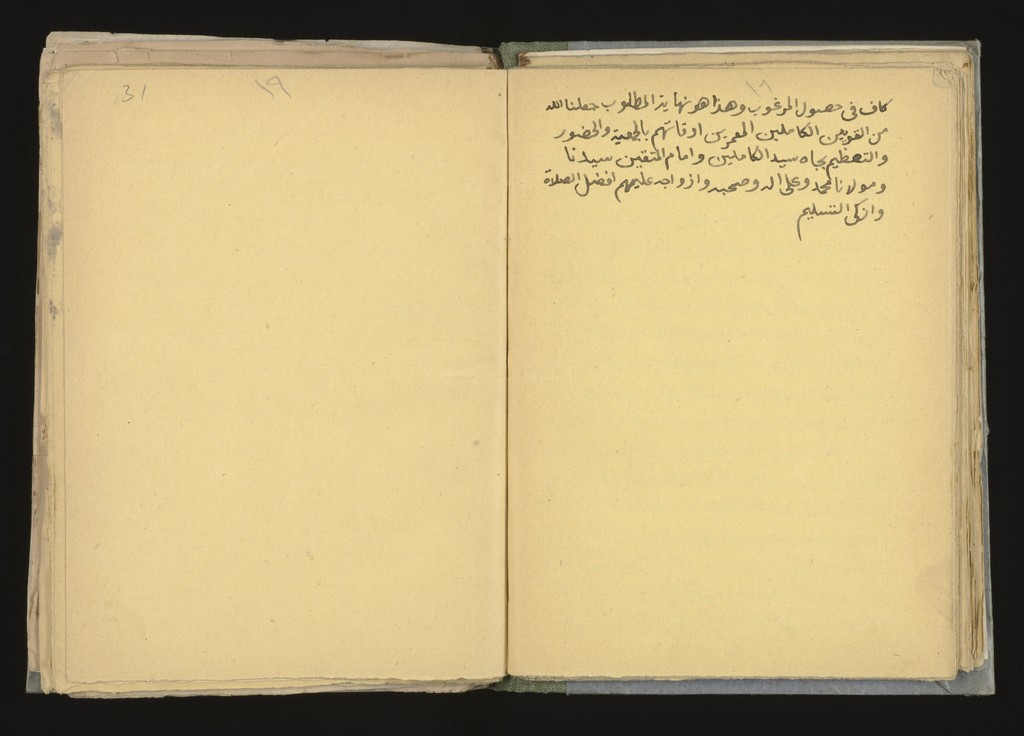 ١٨
كاف فى حصول المرغوب وهذا هو نهاية المطلوب جعلنا الله
من القويين الكاملين المعمرين اوقاتهم بالجمعية والحضور
والتعظيم بجاه سيد الكاملين وامام المتقين سيدنا
ومولانا محمد وعلى اله وصحبه وازواجه عليهم افضل الصلاة
وازكى التسليم
١٩
31